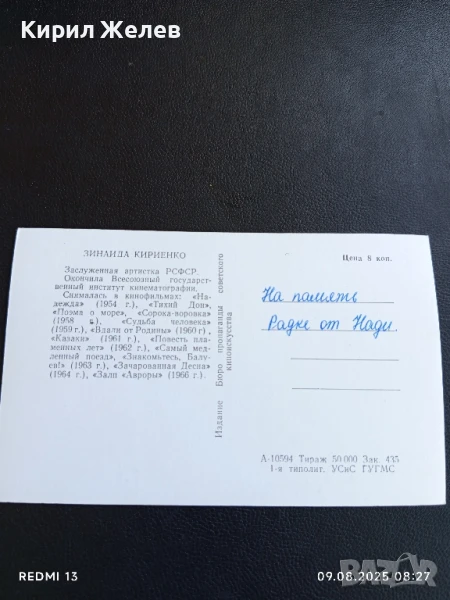 Кирил Желев
ЗИНАИДА КИРИЕНКО
Заслуженная артистка РСФСР.
Окончила Всесоюзный государст-
венный институт кинематографии.
Снималась в кинофильмах: «На-
дежда» (1954 г.), «Тихий Дон»,
«Поэма о море», «Сорока-воровка»
(1958 г.), «Судьба человека»
(1959 г.), «Вдали от Родины» (1960 г)
«Казаки» (1961 г.), «Повесть пла-
менных лет» (1962 г.), «Самый мед-
ленный поезд», «Знакомьтесь, Балу-
ев!» (1963 г.), «Зачарованная Десна»
(1964 г.), «Залп «Авроры» (1966 г.).
Издание Бюро пропаганды советского
киноискусства
Цена 8 коп.
На память
Радке от Нади.
А-10594 Тираж 50 000 Зак. 435
1-я типолит. УСиС ГУГМС
REDMI 13
09.08.2025 08:27
BAZAR